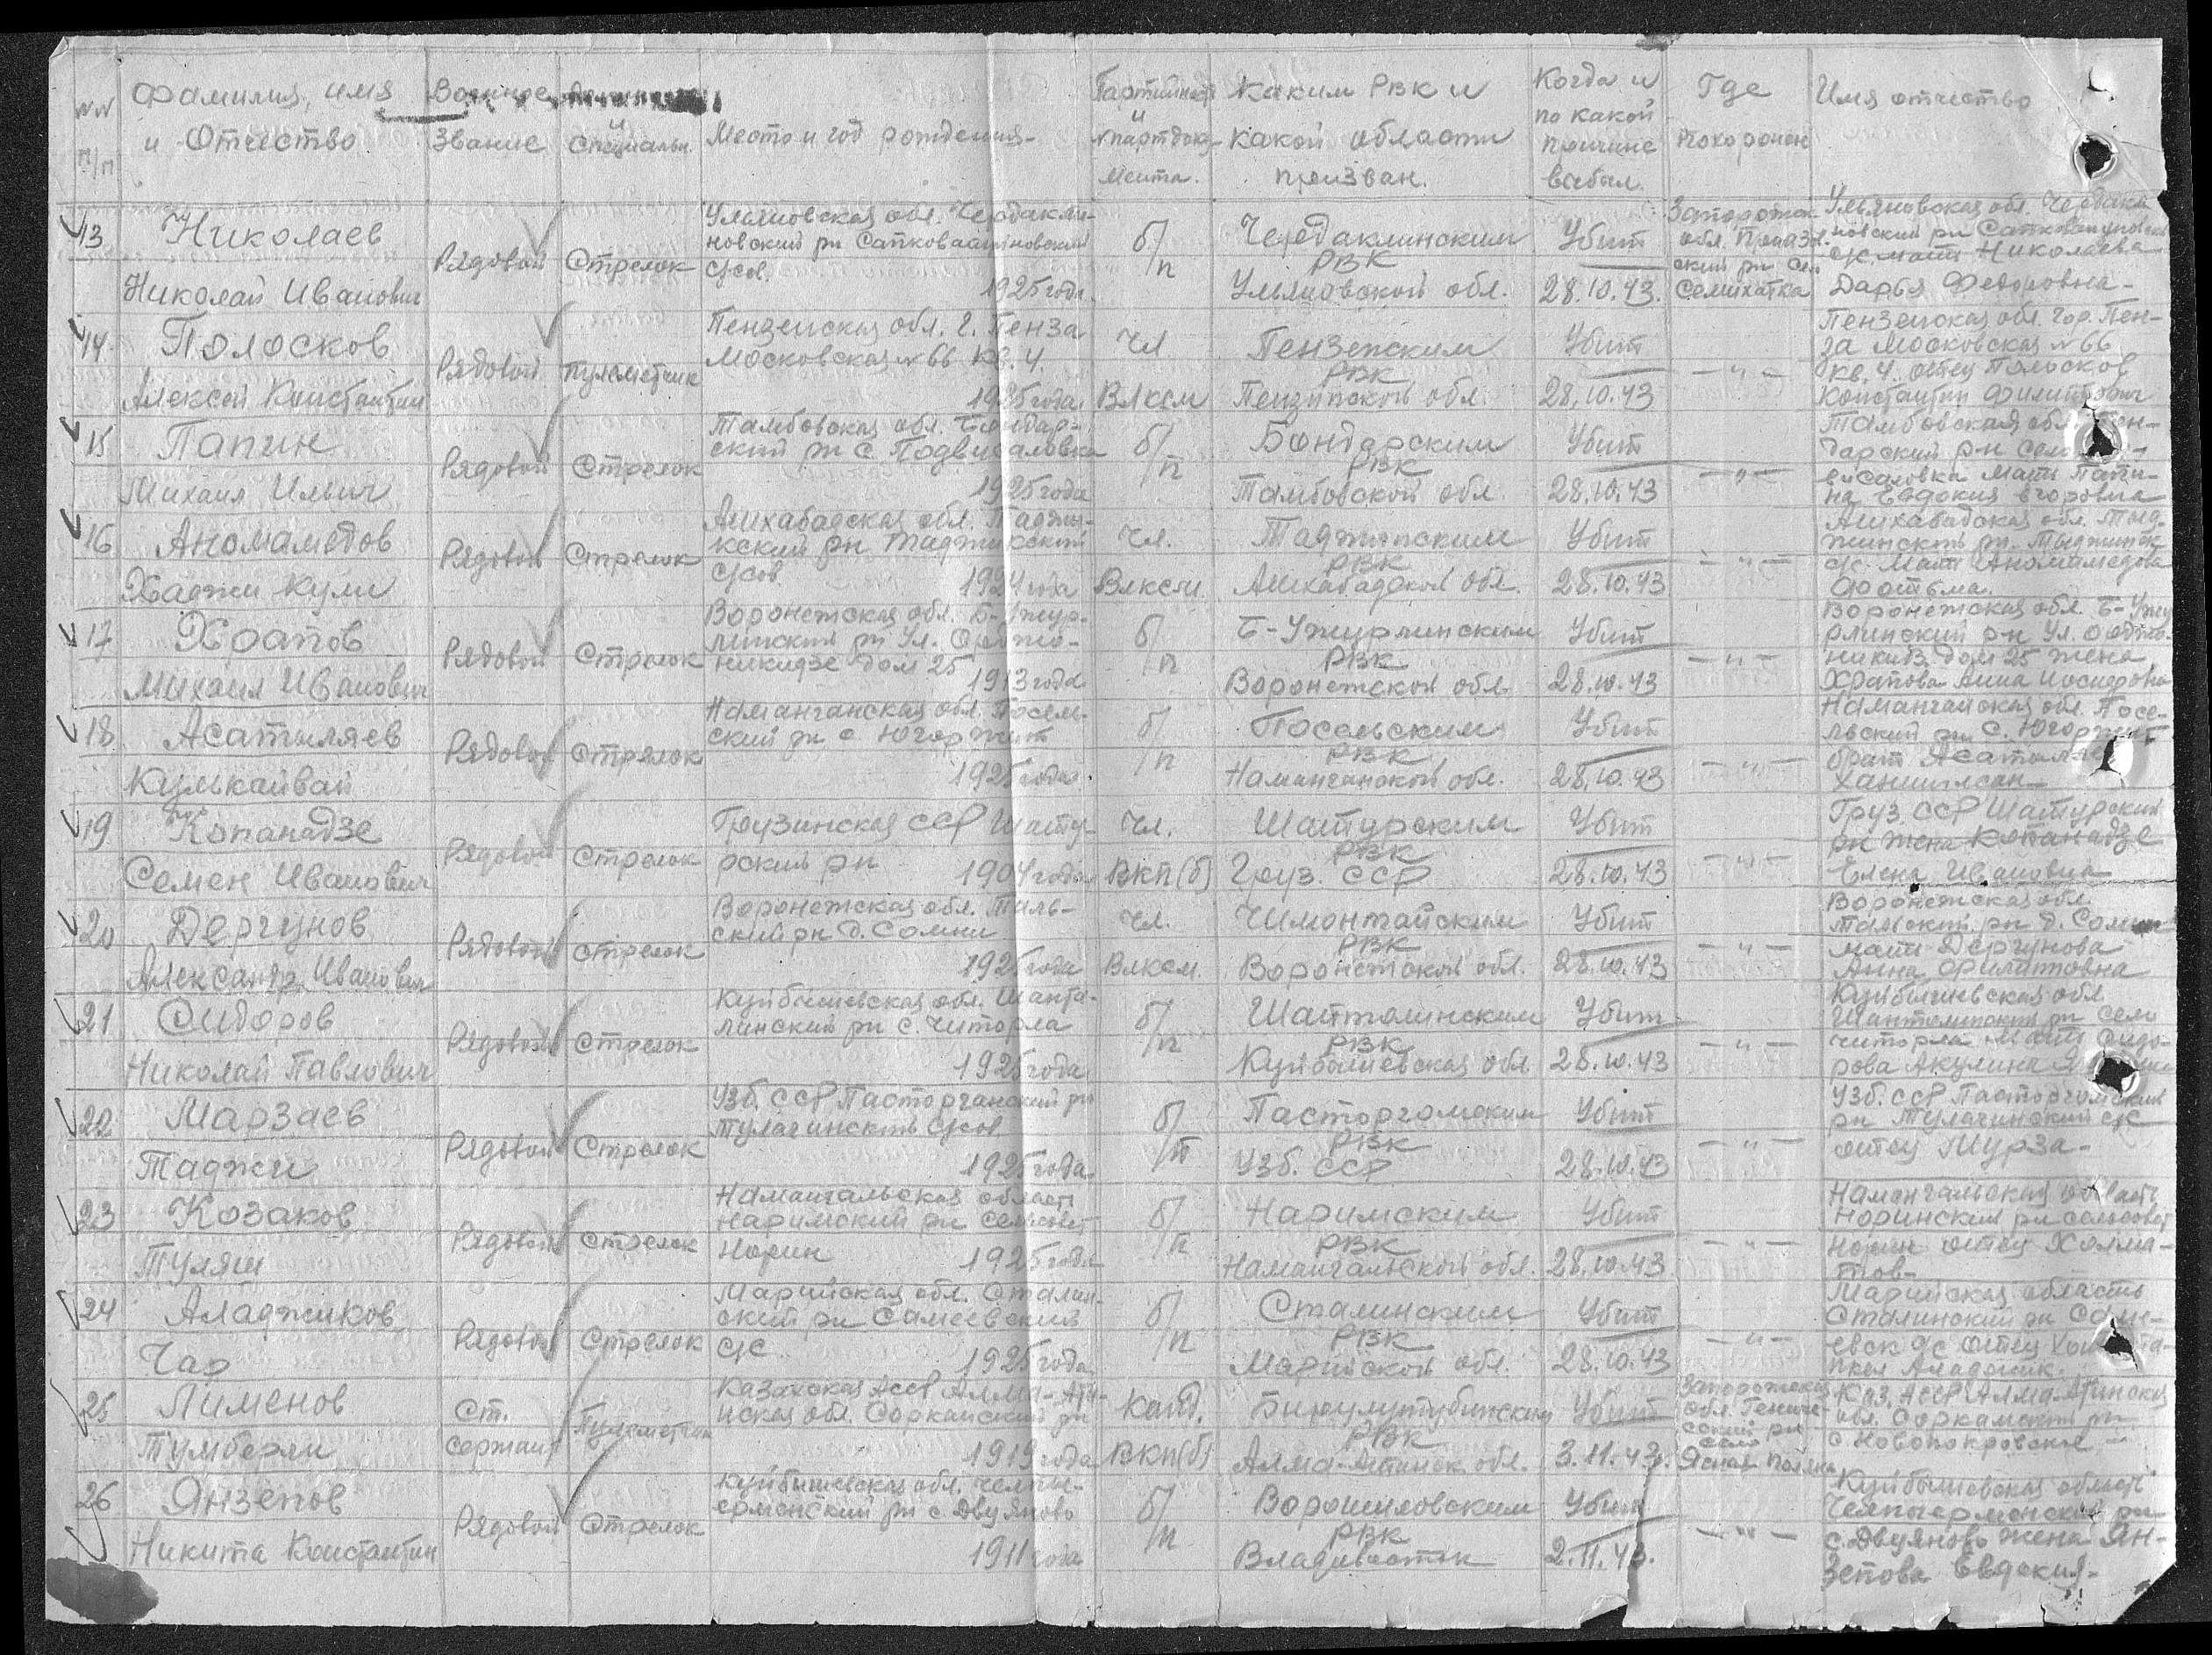 №№ п/п
Фамилия, имя и Отчество
Военное Звание
и специальн.
Место и год рождения
Партийность и № партдокумента.
Каким РВК и какой области призван.
Когда и по какой причине выбыл.
Где похоронен
Имя отчество
13 Николаев
Николай Иванович
Рядовой
Стрелок
Ульяновская обл.
1925 года.
б/п
Чердаклинским РВК
Ульяновской обл.
Убит
28.10.43.
Запорожская обл. Приазовский рн Село Семихатка
Ульяновская обл.
с/с. мать Николаева
Дарья Федоровна
14 Полосков
Алексей Константин
Рядовой
Пулеметчик
Пензенская обл. г. Пенза
Московская №66 кв. 4.
1925 года.
Чл
Влксм
Пензенским РВК
Пензенской обл.
Убит
28.10.43
— " —
Пензенская обл. гор. Пен-
за Московская №66
кв. 4. отец Полосков
Константин Филиппович
15 Папин
Михаил Ильич
Рядовой
Стрелок
Тамбовская обл. Бондар-
ский рн с.
1925 года
б/п
Бондарским РВК
Тамбовской обл.
Убит
28.10.43
— " —
Тамбовская обл.
мать Папи-
на Евдокия Егоровна
16 Аномамедов
Хаджи Кули
Рядовой
Стрелок
Ашхабадская обл.
с/сов.
1924 года
Чл.
Влксм
Таджинским РВК
Ашхабадской обл.
Убит
28.10.43
— " —
Ашхабадская обл.
с/с. Мать Аномамедова
17 Храпов
Михаил Иванович
Рядовой
Стрелок
Воронежская обл.
рн Ул. Орджо-
никидзе дом 25
1913 года
б/п
РВК
Воронежской обл.
Убит
28.10.43
— " —
Воронежская обл.
рн Ул. Орджо-
никидз. дом 25 жена
Храпова Анна Иосифовна
18 Асатыляев
Кулькайвай
Рядовой
Стрелок
Наманганская обл. Посель-
ский рн с
1925 года.
б/п
Посельским РВК
Наманганской обл.
Убит
28.10.43
— " —
Наманганская обл. Посе-
льский рн с.
брат
19 Копанадзе
Семен Иванович
Рядовой
Стрелок
Грузинская ССР Шату-
рский рн
1904 года
Чл.
ВКП(б)
Шатурским РВК
Груз. ССР
Убит
28.10.43
— " —
Груз. ССР Шатурский
рн жена Копанадзе
Елена Ивановна
20 Дергунов
Александр Иванович
Рядовой
Стрелок
Воронежская обл. Таль-
ский рн д. Сомни
1925 года
Чл.
Влксм.
РВК
Воронежской обл.
Убит
28.10.43
— " —
Воронежская обл.
мать Дергунова
Анна Филипповна
21 Сидоров
Николай Павлович
Рядовой
Стрелок
Куйбышевская обл. Шанта-
линский рн с. Читорла
1925 года
б/п
Шанталинским РВК
Куйбышевская обл.
Убит
28.10.43
— " —
Куйбышевская обл
Шанталинский рн село
Читорла мать Сидо-
рова Акулина
22 Марзаев
Таджи
Рядовой
Стрелок
Узб. ССР Пасторганский рн
Тулагинский с/сов.
1925 года.
б/п
Пасторгомским РВК
Узб. ССР
Убит
28.10.43
— " —
Узб. ССР Пасторгомский
рн Тулагинский с/с
отец Мурза-
23 Козаков
Туляш
Рядовой
Стрелок
Намангальская область
Наримский рн сельсовет
Норин
1925 года
б/п
Наримским РВК
Намангальской обл.
Убит
28.10.43
— " —
Намангальская область
Норинский рн сельсовет
Норин отец Холма-
тов-
24 Аладжиков
Чар
Рядовой
Стрелок
Марийская обл. Сталин-
ский рн Самеевский
с/с
1925 года.
б/п
Сталинским РВК
Марийской обл.
Убит
28.10.43
— " —
Марийская область
Сталинский рн
с/с отец
25 Лименов
Тумберян
Ст. Сержант
Пулеметчик
Казахская АССР Алма-Ати-
нская обл.
1919 года
Канд.
ВКП(б)
РВК
Алма-Атинск обл.
Убит
3.11.43.
Запорожская обл. Геническ-
ский рн село Ясная Поляна
Каз. АССР Алма-Атинская
обл.
с Новопокровское
26 Янзепов
Никита Константин
Рядовой
Стрелок
Куйбышевская обл.
рн с Двуяново
1911 года
б/п
Ворошиловским РВК
Владивосток
Убит
2.11.43.
— " —
Куйбышевская область
с. Двуяново жена Ян-
зепова Евдокия-